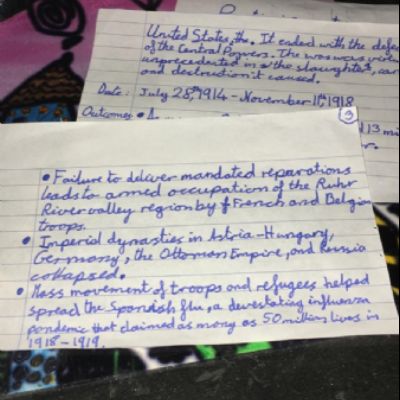 United States, the. It ended with the defe
of the Central Powers. The war was virtu
unprecedented in the slaughter, car
and destruction it caused.
Date: July 28, 1914 - November 11, 1918
Outcomes
13 mi
3
• Failure to deliver mandated reparations
leads to armed occupation of the Ruhr
River valley region by French and Belgian
troops.
• Imperial dynasties in Astria-Hungary,
Germany, the Ottoman Empire, and Russia
collapsed.
• Mass movement of troops and refugees helped
spread the Spanish flu, a devestating influenza
pandemic that claimed as many as 50 million lives in
1918-1919.